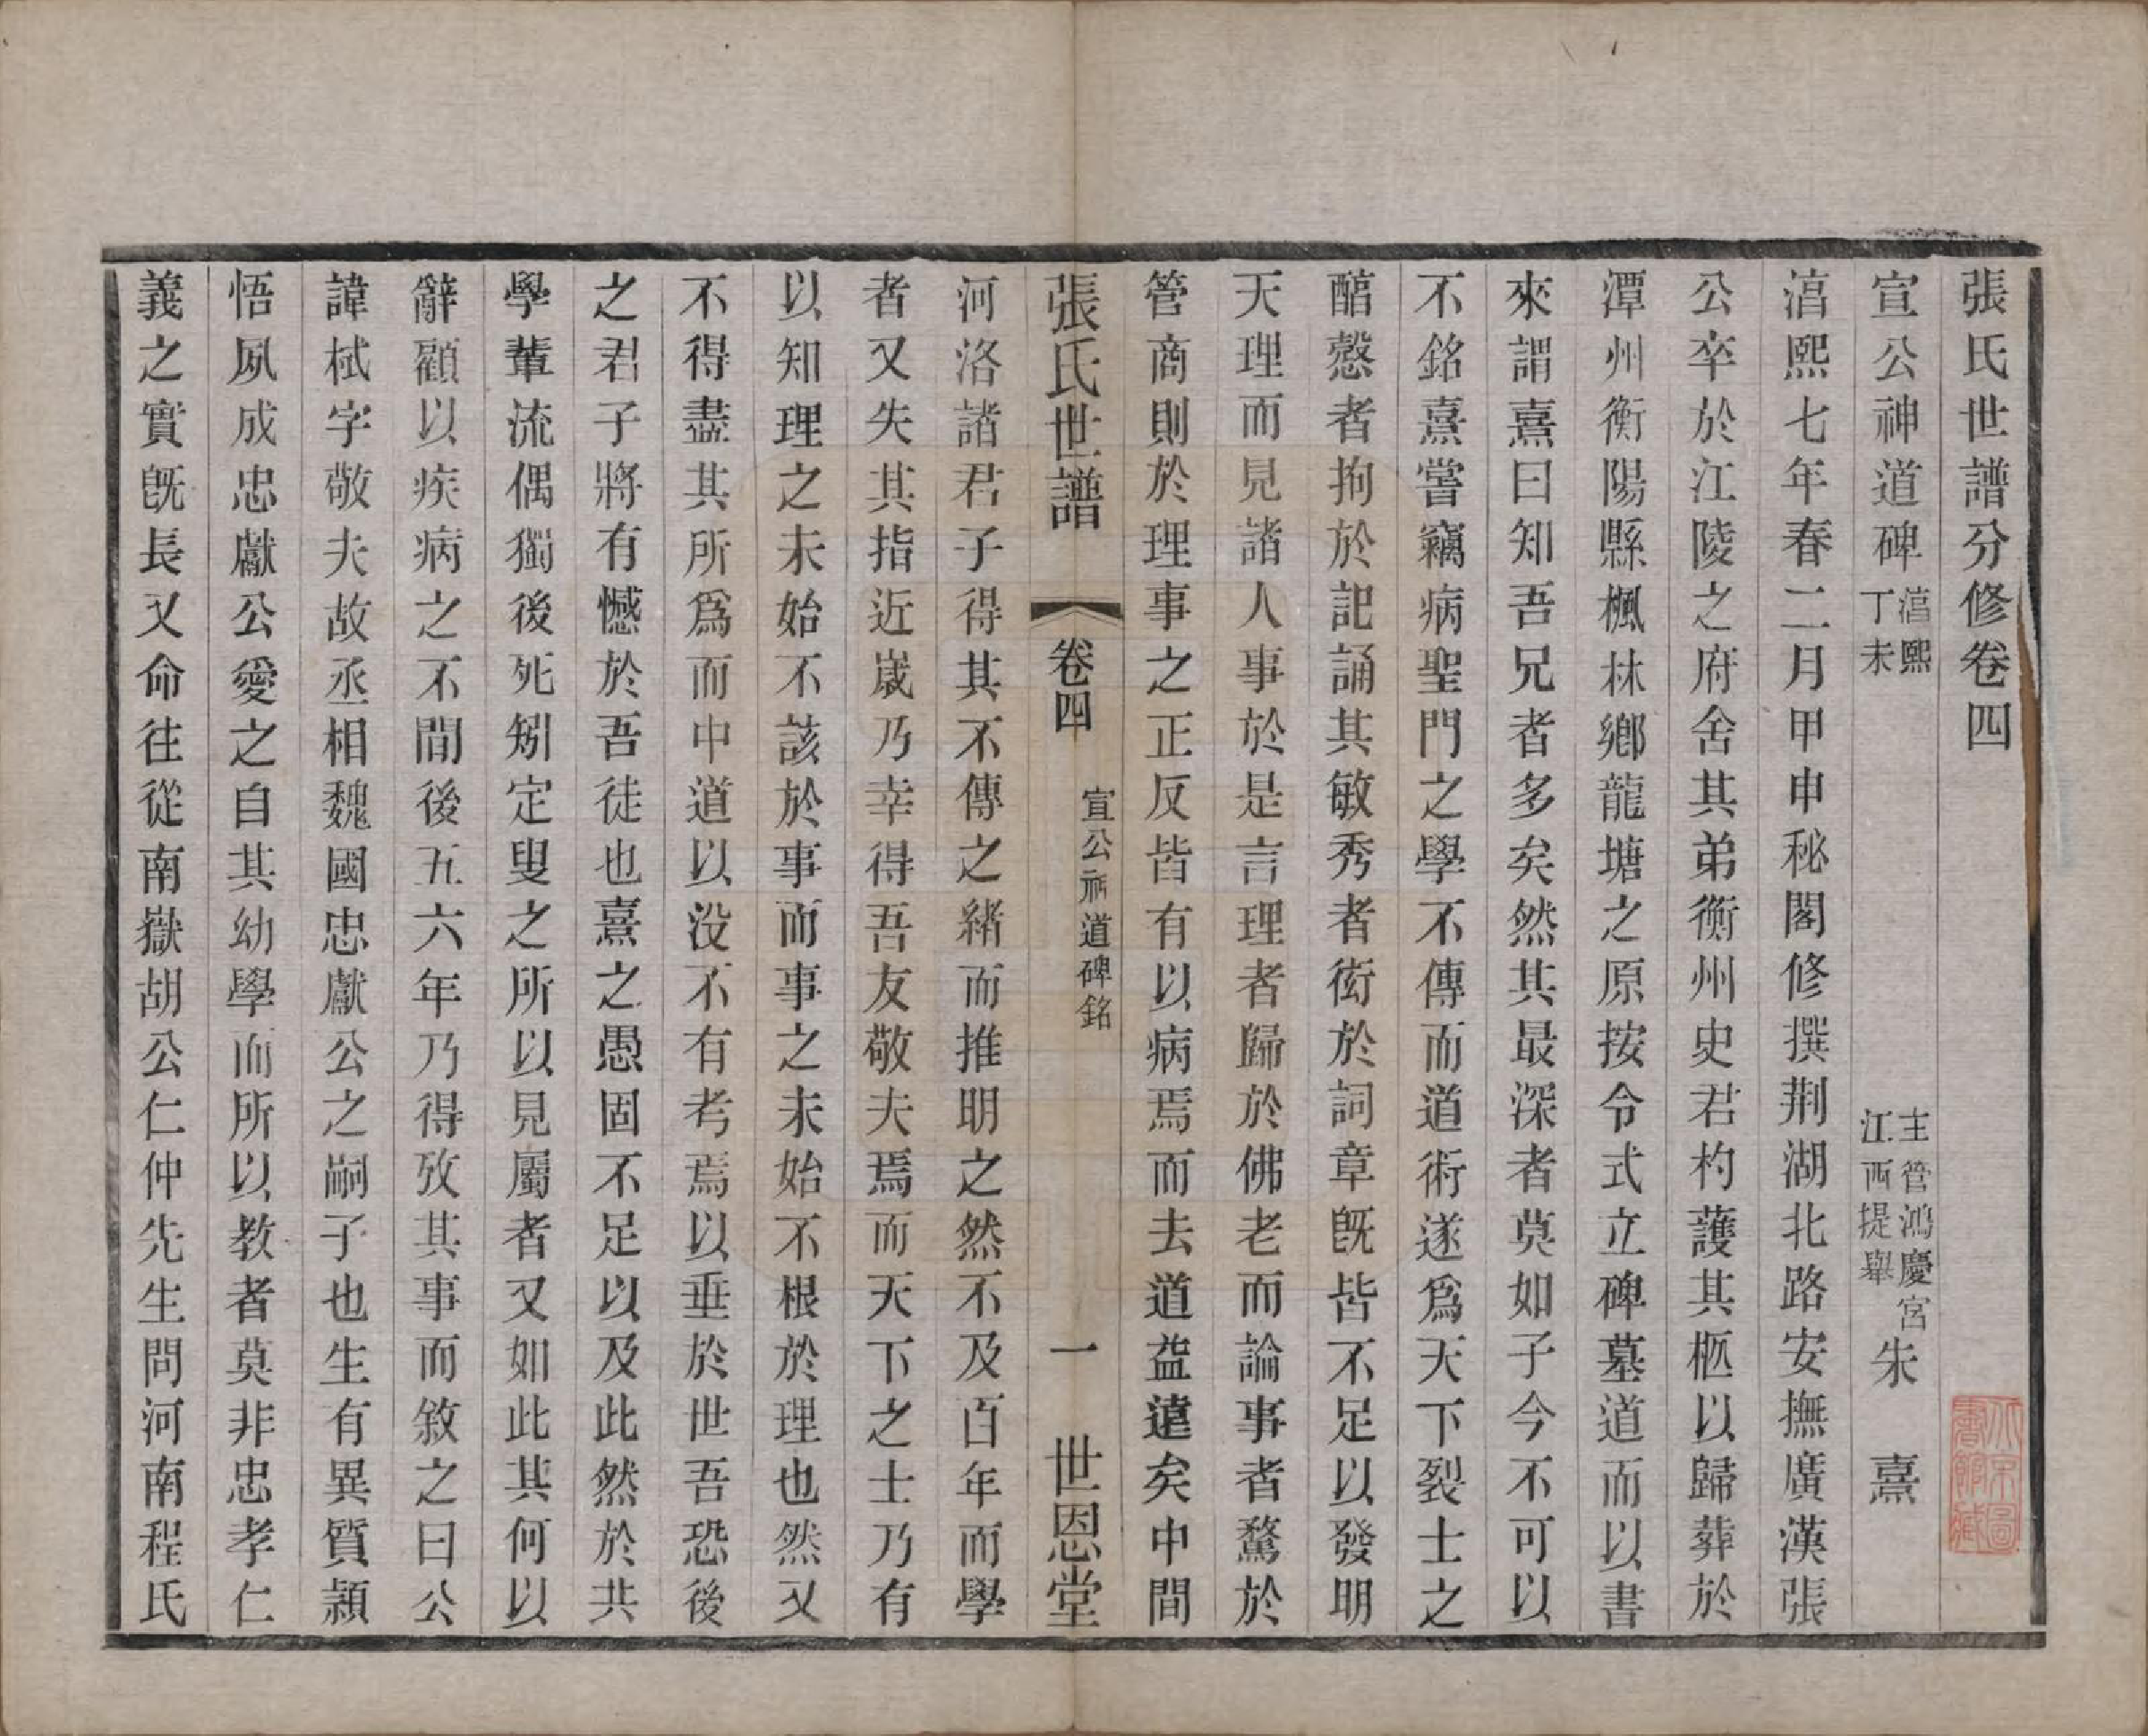 張氏世譜分修卷四
宣公神道碑
淳熙
丁未
主管鴻慶宮
江西提舉
朱熹
淳熙七年春二月甲申秘閣修撰荆湖北路安撫廣漢張
公卒於江陵之府舍其弟衡州史君杓護其柩以歸葬於
潭州衡陽縣楓林鄉龍塘之原按令式立碑墓道而以書
來謂熹曰知吾兄者多矣然其最深者莫如子今不可以
不銘熹嘗竊病聖門之學不傳而道術遂爲天下裂士之
醕慤者拘於記誦其敏秀者衒於詞章旣皆不足以發明
天理而見諸人事於是言理者歸於佛老而論事者騖於
管商則於理事之正反皆有以病焉而去道益遠矣中間
張氏世譜
卷四
宣公神道碑銘
一
世恩堂
河洛諸君子得其不傳之緒而推明之然不及百年而學
者又失其指近歲乃幸得吾友敬夫焉而天下之士乃有
以知理之未始不該於事而事之未始不根於理也然又
不得盡其所爲而中道以没不有考焉以垂於世吾恐後
之君子將有憾於吾徒也熹之愚固不足以及此然於共
學輩流偶獨後死矧定叟之所以見屬者又如此其何以
辭顧以疾病之不間後五六年乃得攷其事而敘之曰公
諱栻字敬夫故丞相魏國忠獻公之嗣子也生有異質穎
悟夙成忠獻公愛之自其幼學而所以教者莫非忠孝仁
義之實旣長又命往從南嶽胡公仁仲先生問河南程氏